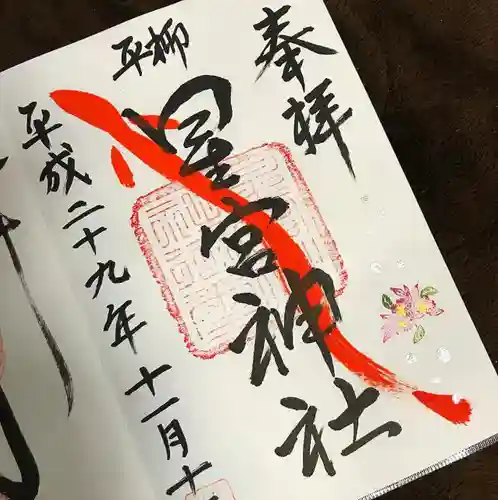 奉拝
柳
平
星宮神社
平成二十九年十一月十